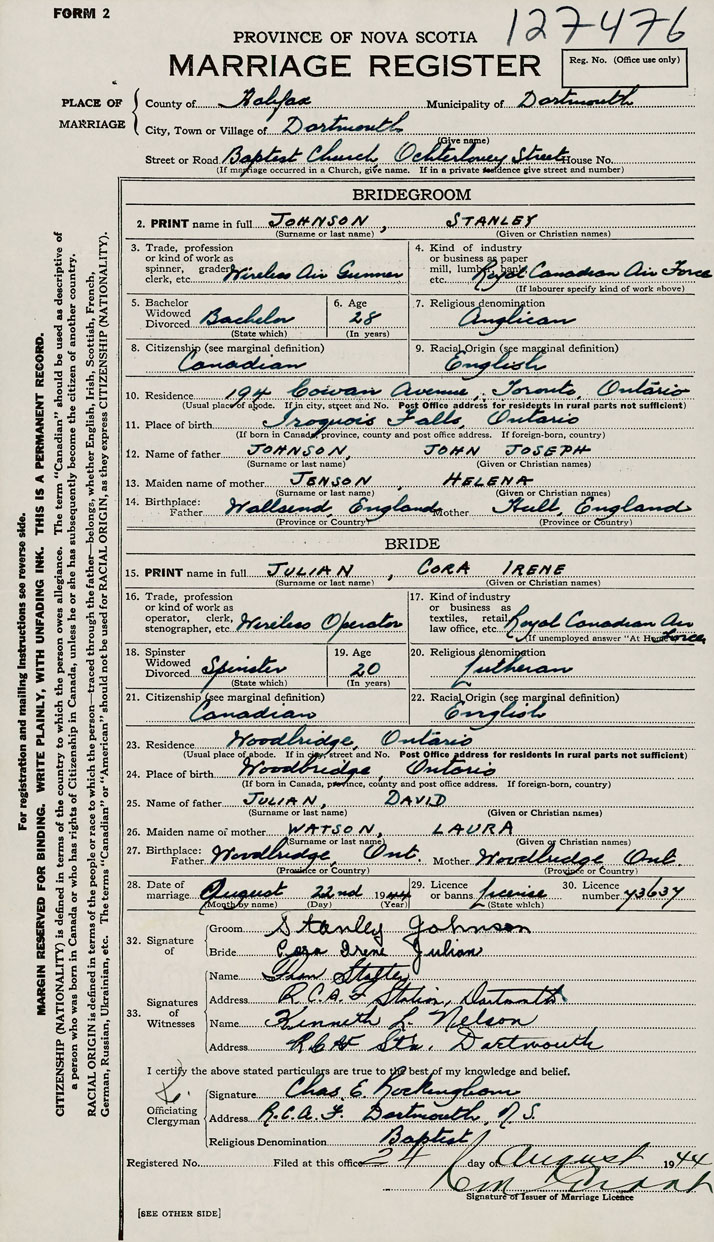 FORM 2
127476
PROVINCE OF NOVA SCOTIA
MARRIAGE REGISTER
Reg. No. (Office use only)
PLACE OF MARRIAGE
County of Halifax Municipality of Dartmouth
City, Town or Village of Dartmouth
(Give name)
Street or Road Baptist Church, Ochterloney Street House No.
(If marriage occurred in a Church, give name. If in a private residence give street and number)
BRIDEGROOM
2. PRINT name in full JOHNSON, STANLEY
(Surname or last name) (Given or Christian names)
3. Trade, profession or kind of work as spinner, grader, clerk, etc. Wireless Air Gunner
4. Kind of industry or business as paper mill, lumber, bank, etc. Royal Canadian Air Force
(If labourer specify kind of work above)
5. Bachelor Widowed Divorced Bachelor
(State which)
6. Age 28
(In years)
7. Religious denomination Anglican
8. Citizenship (see marginal definition) Canadian
9. Racial Origin (see marginal definition) English
10. Residence 194 Cowan Avenue, Toronto, Ontario
(Usual place of abode. If in city, street and No. Post Office address for residents in rural parts not sufficient)
11. Place of birth Iroquois Falls, Ontario
(If born in Canada, province, county and post office address. If foreign-born, country)
12. Name of father JOHNSON, JOHN JOSEPH
(Surname or last name) (Given or Christian names)
13. Maiden name of mother JENSON, HELENA
(Surname or last name) (Given or Christian names)
14. Birthplace: Father Wallsend, England Mother Hull, England
(Province or Country) (Province or Country)
BRIDE
15. PRINT name in full JULIAN, CORA IRENE
(Surname or last name) (Given or Christian names)
16. Trade, profession or kind of work as operator, clerk, stenographer, etc. Wireless Operator
17. Kind of industry or business as textiles, retail, law office, etc. Royal Canadian Air Force
(If unemployed answer "At Home")
18. Spinster Widowed Divorced Spinster
(State which)
19. Age 20
(In years)
20. Religious denomination Lutheran
21. Citizenship (see marginal definition) Canadian
22. Racial Origin (see marginal definition) English
23. Residence Woodbridge, Ontario
(Usual place of abode. If in city, street and No. Post Office address for residents in rural parts not sufficient)
24. Place of birth Woodbridge, Ontario
(If born in Canada, province, county and post office address. If foreign-born, country)
25. Name of father JULIAN, DAVID
(Surname or last name) (Given or Christian names)
26. Maiden name of mother WATSON, LAURA
(Surname or last name) (Given or Christian names)
27. Birthplace: Father Woodbridge, Ont. Mother Woodbridge Ont.
(Province or Country) (Province or Country)
28. Date of marriage August 22nd 1944
(Month by name) (Day) (Year)
29. Licence or banns License
(State which)
30. Licence number 43637
32. Signature of
Groom Stanley Johnson
Bride Cora Irene Julian
33. Signatures of Witnesses
Name
Address R.C.A.F Station, Dartmouth
Name Kenneth L. Nelson
Address RCAF Stn. Dartmouth
I certify the above stated particulars are true to the best of my knowledge and belief.
Officiating Clergyman
Signature Chas. E. Rockingham
Address R.C.A.F. Dartmouth, N.S.
Religious Denomination Baptist
Registered No. Filed at this office 24 day of August 1944
Signature of Issuer of Marriage Licence
[SEE OTHER SIDE]
For registration and mailing instructions see reverse side.
MARGIN RESERVED FOR BINDING. WRITE PLAINLY, WITH UNFADING INK. THIS IS A PERMANENT RECORD.
CITIZENSHIP (NATIONALITY) is defined in terms of the country to which the person owes allegiance. The term "Canadian" should be used as descriptive of
a person who was born in Canada or who has rights of Citizenship in Canada, unless he or she has subsequently become the citizen of another country.
RACIAL ORIGIN is defined in terms of the people or race to which the person—traced through the father—belongs, whether English, Irish, Scottish, French,
German, Russian, Ukrainian, etc. The terms "Canadian" or "American" should not be used for RACIAL ORIGIN, as they express CITIZENSHIP (NATIONALITY).